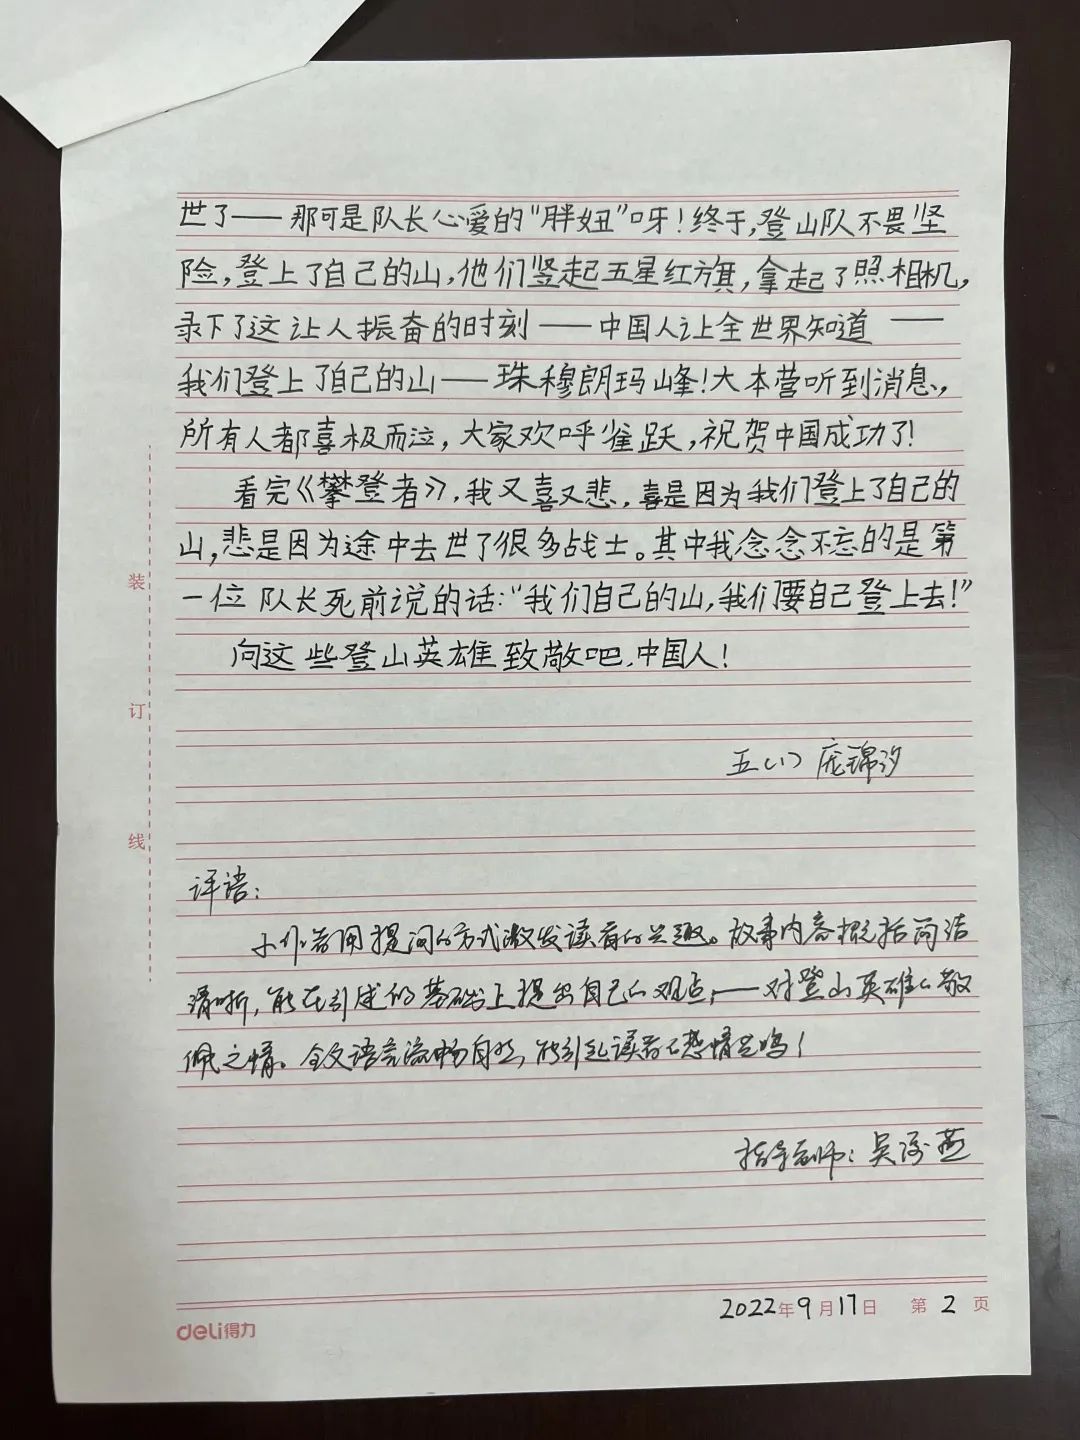 世了——那可是队长心爱的“胖妞”呀！终于，登山队不畏坚
险，登上了自己的山，他们竖起五星红旗，拿起了照相机，
录下了这让人振奋的时刻——中国人让全世界知道——
我们登上了自己的山——珠穆朗玛峰！大本营听到消息，
所有人都喜极而泣，大家欢呼雀跃，祝贺中国成功了！
看完《攀登者》，我又喜又悲，喜是因为我们登上了自己的
山，悲是因为途中去世了很多战士。其中我念念不忘的是第
一位队长死前说的话：“我们自己的山，我们要自己登上去！”
向这些登山英雄致敬吧，中国人！
五（1） 庞锦汐
评语：
小作者用提问的方式激发读者的兴趣。故事内容概括简洁
清晰，能在引述的基础上提出自己的观点，——对登山英雄的敬
佩之情。全文语言流畅自然，能引起读者的感情共鸣！
指导老师：吴 燕
2022年9月17日 第2页
deli得力
装
订
线